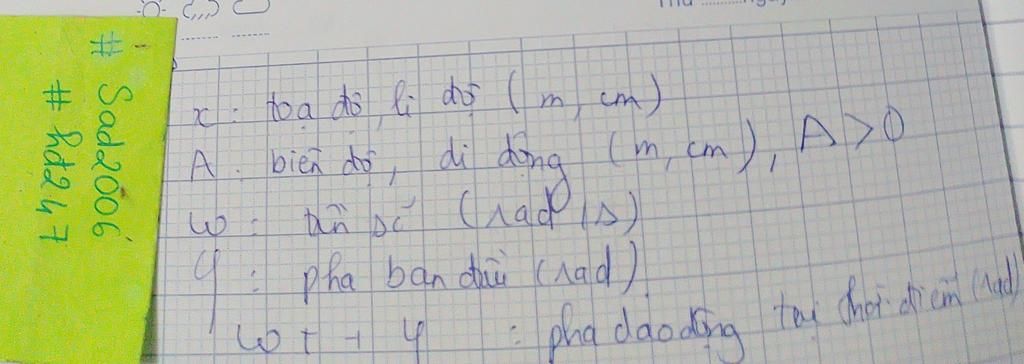 Thứ ............Ngày
# Sad2006
# hd247
x : toạ độ, li độ (m, cm)
A : biên độ, di động (m, cm), A > 0
ω : tần số (rad/s)
φ : pha ban đầu (rad)
ωt + φ : pha dao động tại thời điểm (rad)